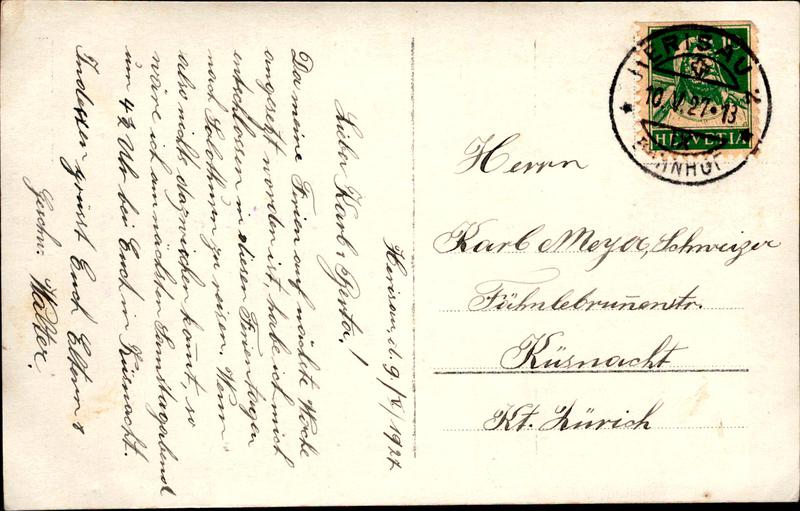 Herisau, d. 9/V/1927
Lieber Karl, Berta!
Da meine Ferien auf nächste Woche
angesetzt worden ist, habe ich mich
entschlossen in diesen Ferientagen
nach Solothurn zu reisen. Wenn
also nichts dazwischen kommt, so
wäre ich am nächsten Samstagabend
um 4½ Uhr bei Euch in Küsnacht.
Indessen grüsst Euch Eltern &
Geschw. Walter.
HERISAU 2
10.V.27.13
BAHNHOF
HELVETIA
Herrn
Karl Meyer, Schweizer
Fähnlebrunnenstr.
Küsnacht
Kt. Zürich